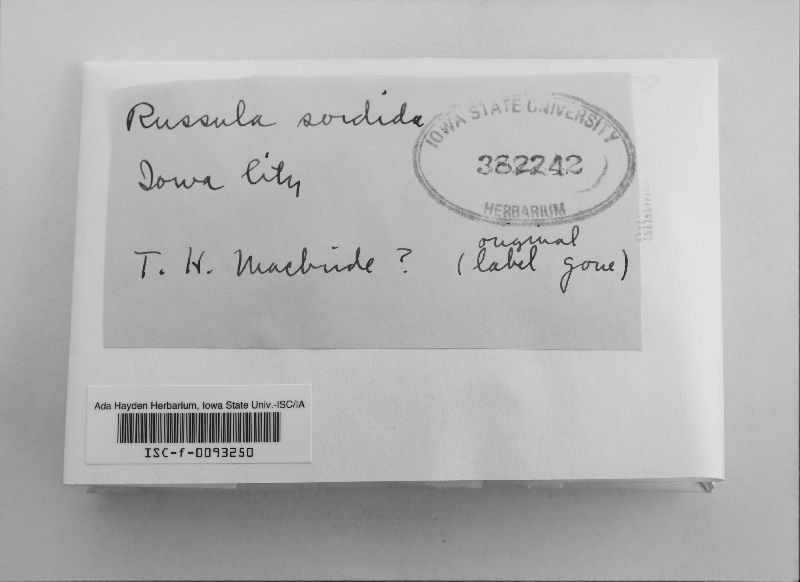 Russula sordida
IOWA STATE UNIVERSITY
382242
HERBARIUM
Iowa City
T. H. Macbride ? (original label gone)
Ada Hayden Herbarium, Iowa State Univ.-ISC/IA
ISC-f-0093250